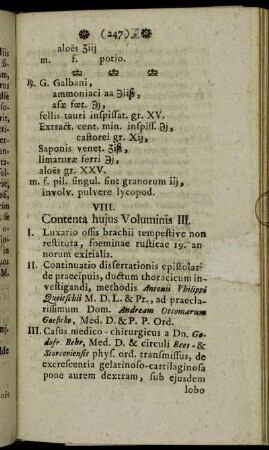 (247)
aloës ʒiij
m. f. potio.
℞. G. Galbani,
ammoniaci aa ʒiiß,
asæ fœt. ℈j,
fellis tauri inspissat. gr. XV.
Extract. cent. min. inspiss. ℈j,
castorei gr. Xij,
Saponis venet. ʒiß,
limaturæ ferri ℈j,
aloës gr. XXV.
m. f. pil. singul. sint granorum iij,
involv. pulvere lycopod.
VIII.
Contenta hujus Voluminis III.
I. Luxatio ossis brachii tempestive non
restituta, foeminae rusticae 19. an
norum exitialis.
II. Continuatio dissertationis epistolari
de praecipuis, ductum thoracicum in-
vestigandi, methodis Antonii Philippi
Queitschii M. D. L. & Pr., ad praecla-
rissimum Dom. Andream Ottomarum
Goelicke, Med. D. & P. P. Ord.
III. Casus medico-chirurgicus a Dn. Go-
dofr. Behr, Med. D. & circuli Bees- &
Storcoviensis phys. ord. transmissus, de
excrescentia gelatinoso-cartilaginosa
pone aurem dextram, sub ejusdem
lobo